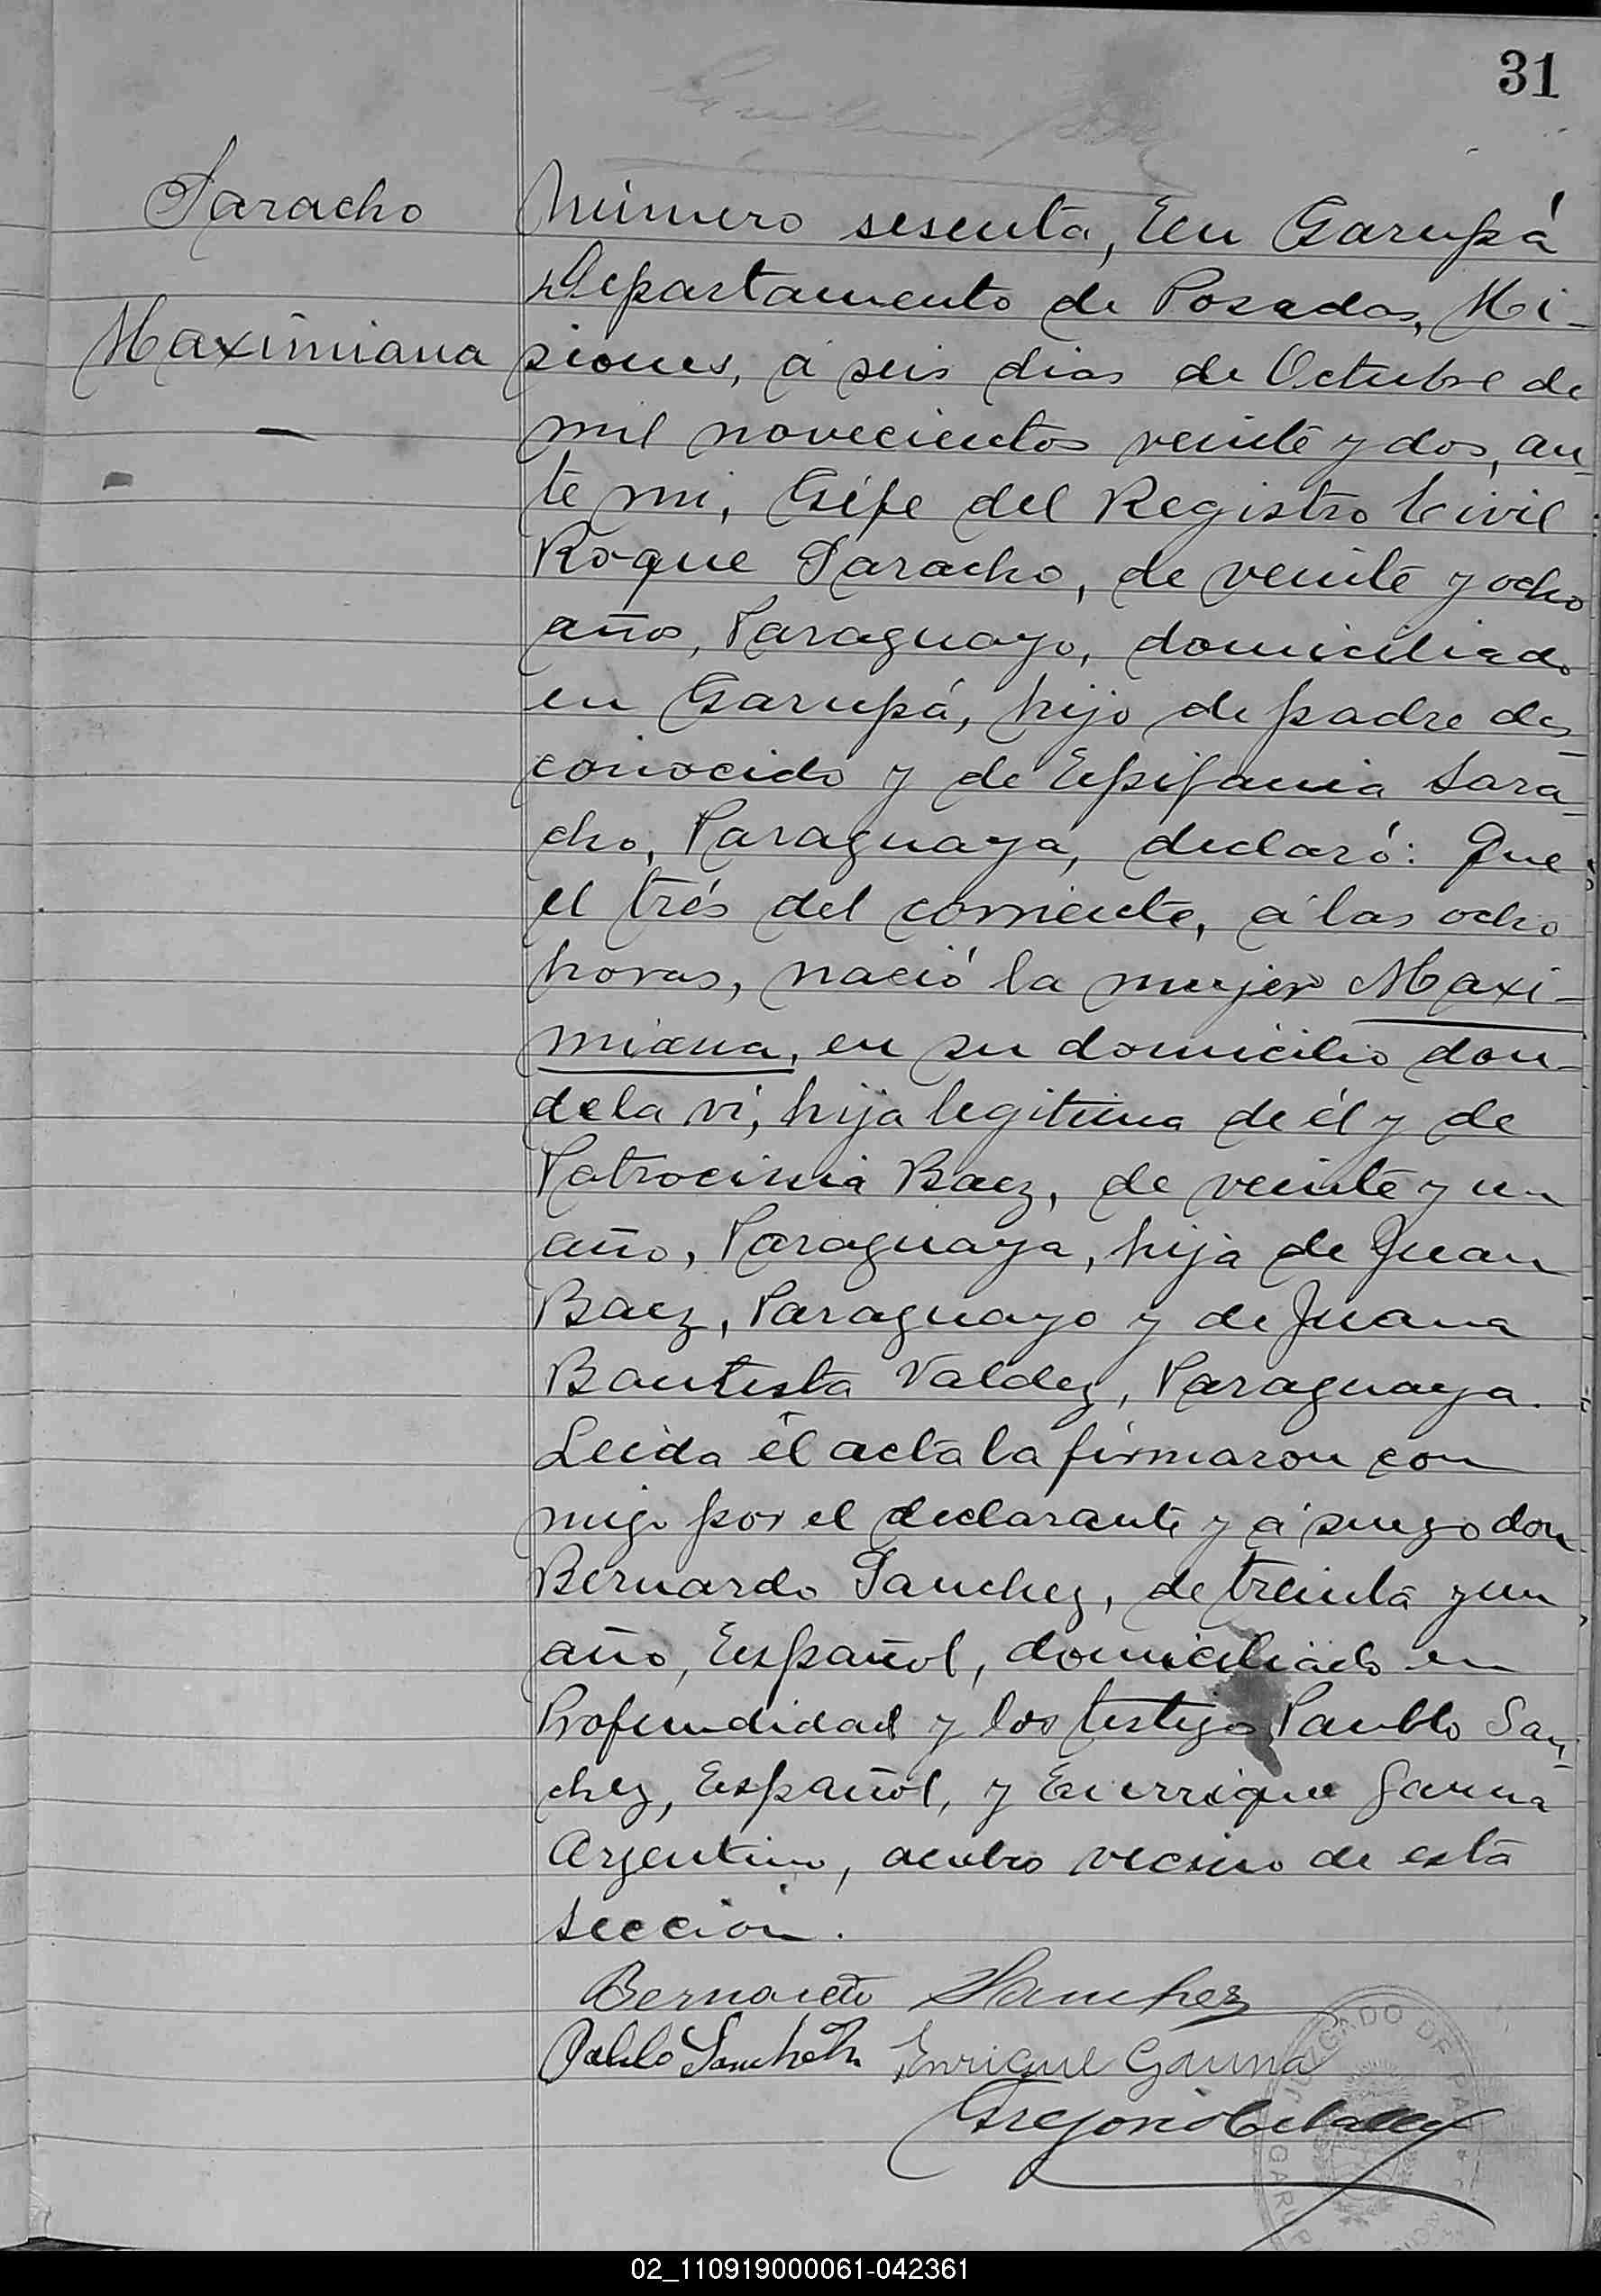 31
Saracho
Maximiana
Número sesenta, En Garupá
Departamento de Posadas, Mi-
siones, á seis dias de Octubre de
mil novecientos veinte y dos, an-
te mi, Géfe del Registro Civil
Roque Saracho, de veinte y ocho
años, Paraguayo, domiciliado
en Garupá, hijo de padre des-
conocido y de Epifania Sara-
cho, Paraguaya, declaró: Que
el trés del corriente, á las ocho
horas, nació la mujer Maxi-
miana, en su domicilio don-
de la ví, hija legitima de él y de
Patrocinia Baez, de veinte y un
año, Paraguaya, hija de Juan
Baez, Paraguayo y de Juana
Bautista Valdez, Paraguaya.
Leida él acta la firmaron con
migo por el declarante y á ruego don
Bernardo Sanchez, de treinta y un
año, Español, domiciliado en
Profundidad y los testigos Pablo San-
chez, Español, y Enrrique Gauna
Argentino, vecino de esta
seccion.
Bernardo Sanchez
Pablo Sanchez Enrique Gauna
Gregorio
JUZGADO DE PAZ
GARUP
02_110919000061-042361